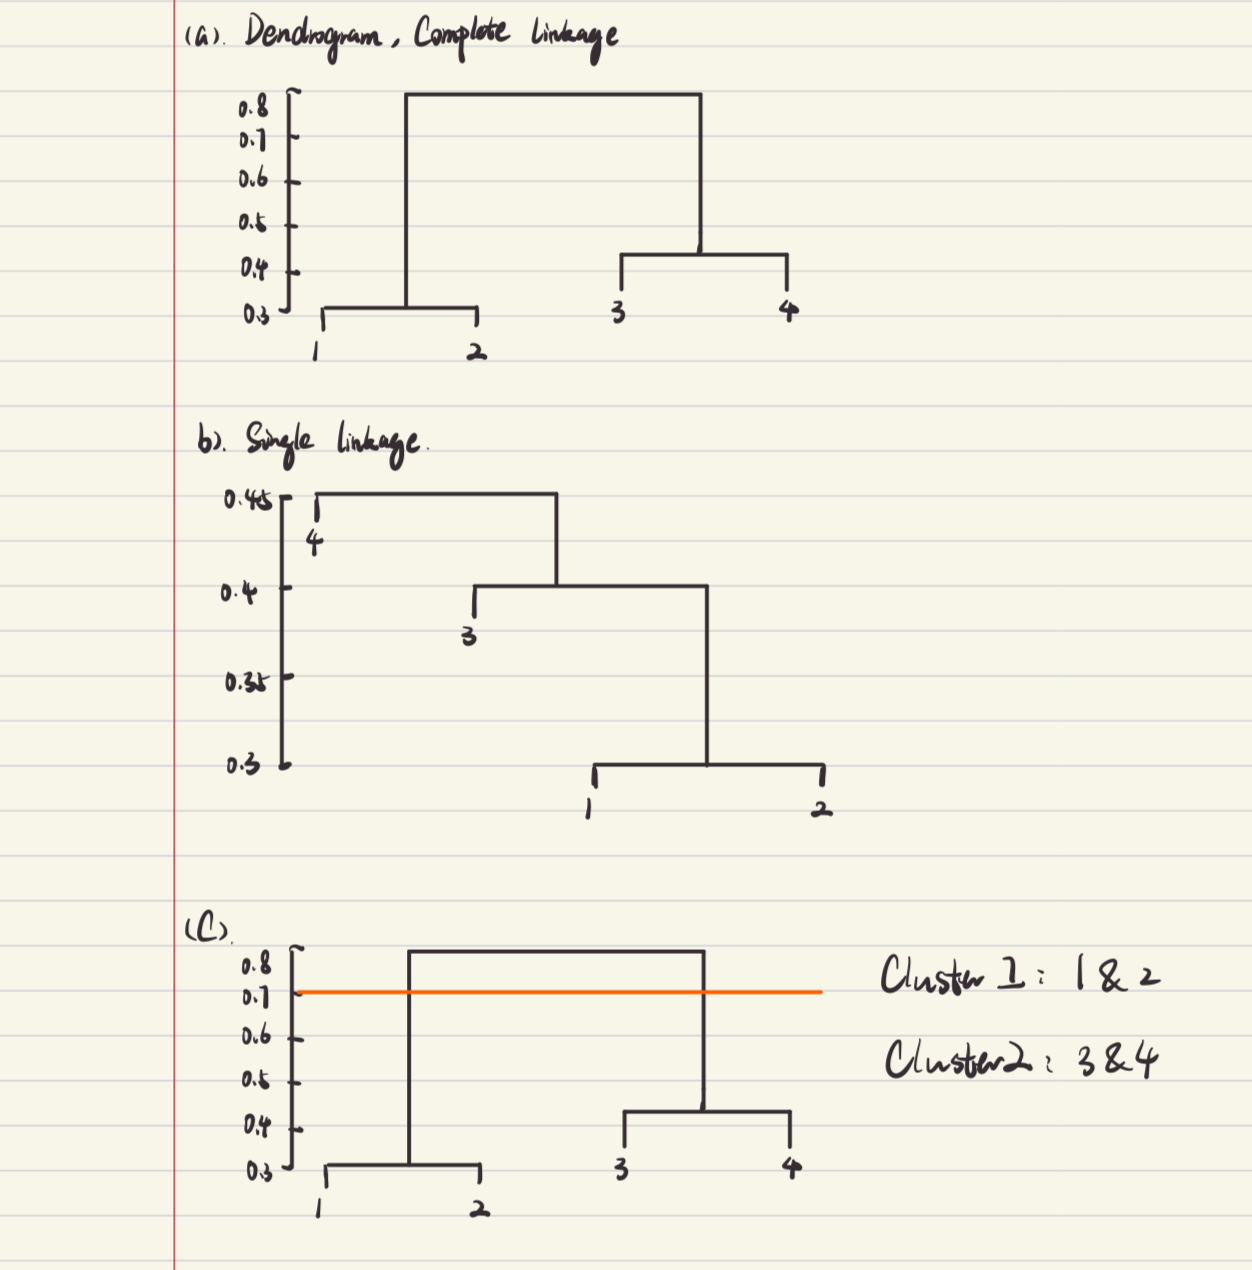 (a). Dendrogram, Complete Linkage
0.8
0.7
0.6
0.5
0.4
0.3
3 4
1 2
b). Single linkage.
0.45
4
0.4
3
0.35
0.3
1 2
(C).
0.8
0.7
0.6
0.5
0.4
0.3
3 4
1 2
Cluster 1: 1 & 2
Cluster 2: 3 & 4